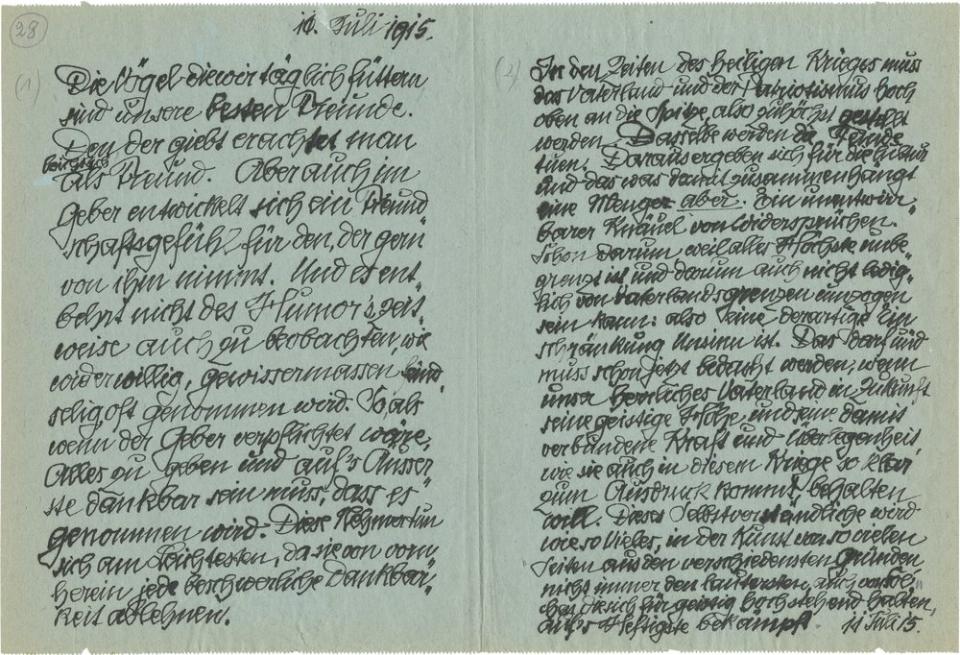 28
11. Juli 1915.
(1)
Die Vögel die wir täglich füttern
sind unsere besten Freunde.
Den der giebt erachtet man
leichthin
als Freund. Aber auch im
Geber entwickelt sich ein Freund-
schaftsgefühl für den, der gern
von ihm nimmt. Und es ent-
behrt nicht des Humor's zeit-
weise auch zu beobachten, wie
widerwillig, gewissermassen feind-
selig oft genommen wird. So als
wenn der Geber verpflichtet wäre,
Alles zu geben und auf's Äusser-
ste dankbar sein muss, dass es
genommen wird. Diese Nehmer tun
sich am leichtesten, da sie von vorn-
herein jede beschwerliche Dankbar-
keit ablehnen.
(2)
In den Zeiten des heiligen Krieges muss
das Vaterland und der Patriotismus hoch
oben an die Spitze, also zuhöchst gestellt
werden. Dasselbe werden die Feinde
tuen. Daraus ergeben sich für die Kultur
und das was damit zusammenhängt
eine Menge aber. Ein unentwirr-
barer Knäuel von Widersprüchen.
Schon darum weil alles Höchste unbe-
grenzt ist und darum auch nicht ledig-
lich von Vaterlandsgrenzen umzogen
sein kann: also eine derartige Ein
schränkung Unsinn ist. Das darf und
muss schon jetzt bedacht werden, wenn
unser herrliches Vaterland in Zukunft
seine geistige Höhe, und eine damit
verbundene Kraft und Überlegenheit
wie sie auch in diesem Kriege so klar
zum Ausdruck kommt, behalten
will. Dieses Selbstverständliche wird
wie so Vieles, in der Kunst von so vielen
Seiten aus den verschiedensten Gründen
nicht immer den lautersten, auch von Sol-
chen die sich für geistig hochstehend halten,
auf's Heftigste bekämpft. 11 Juli 15.